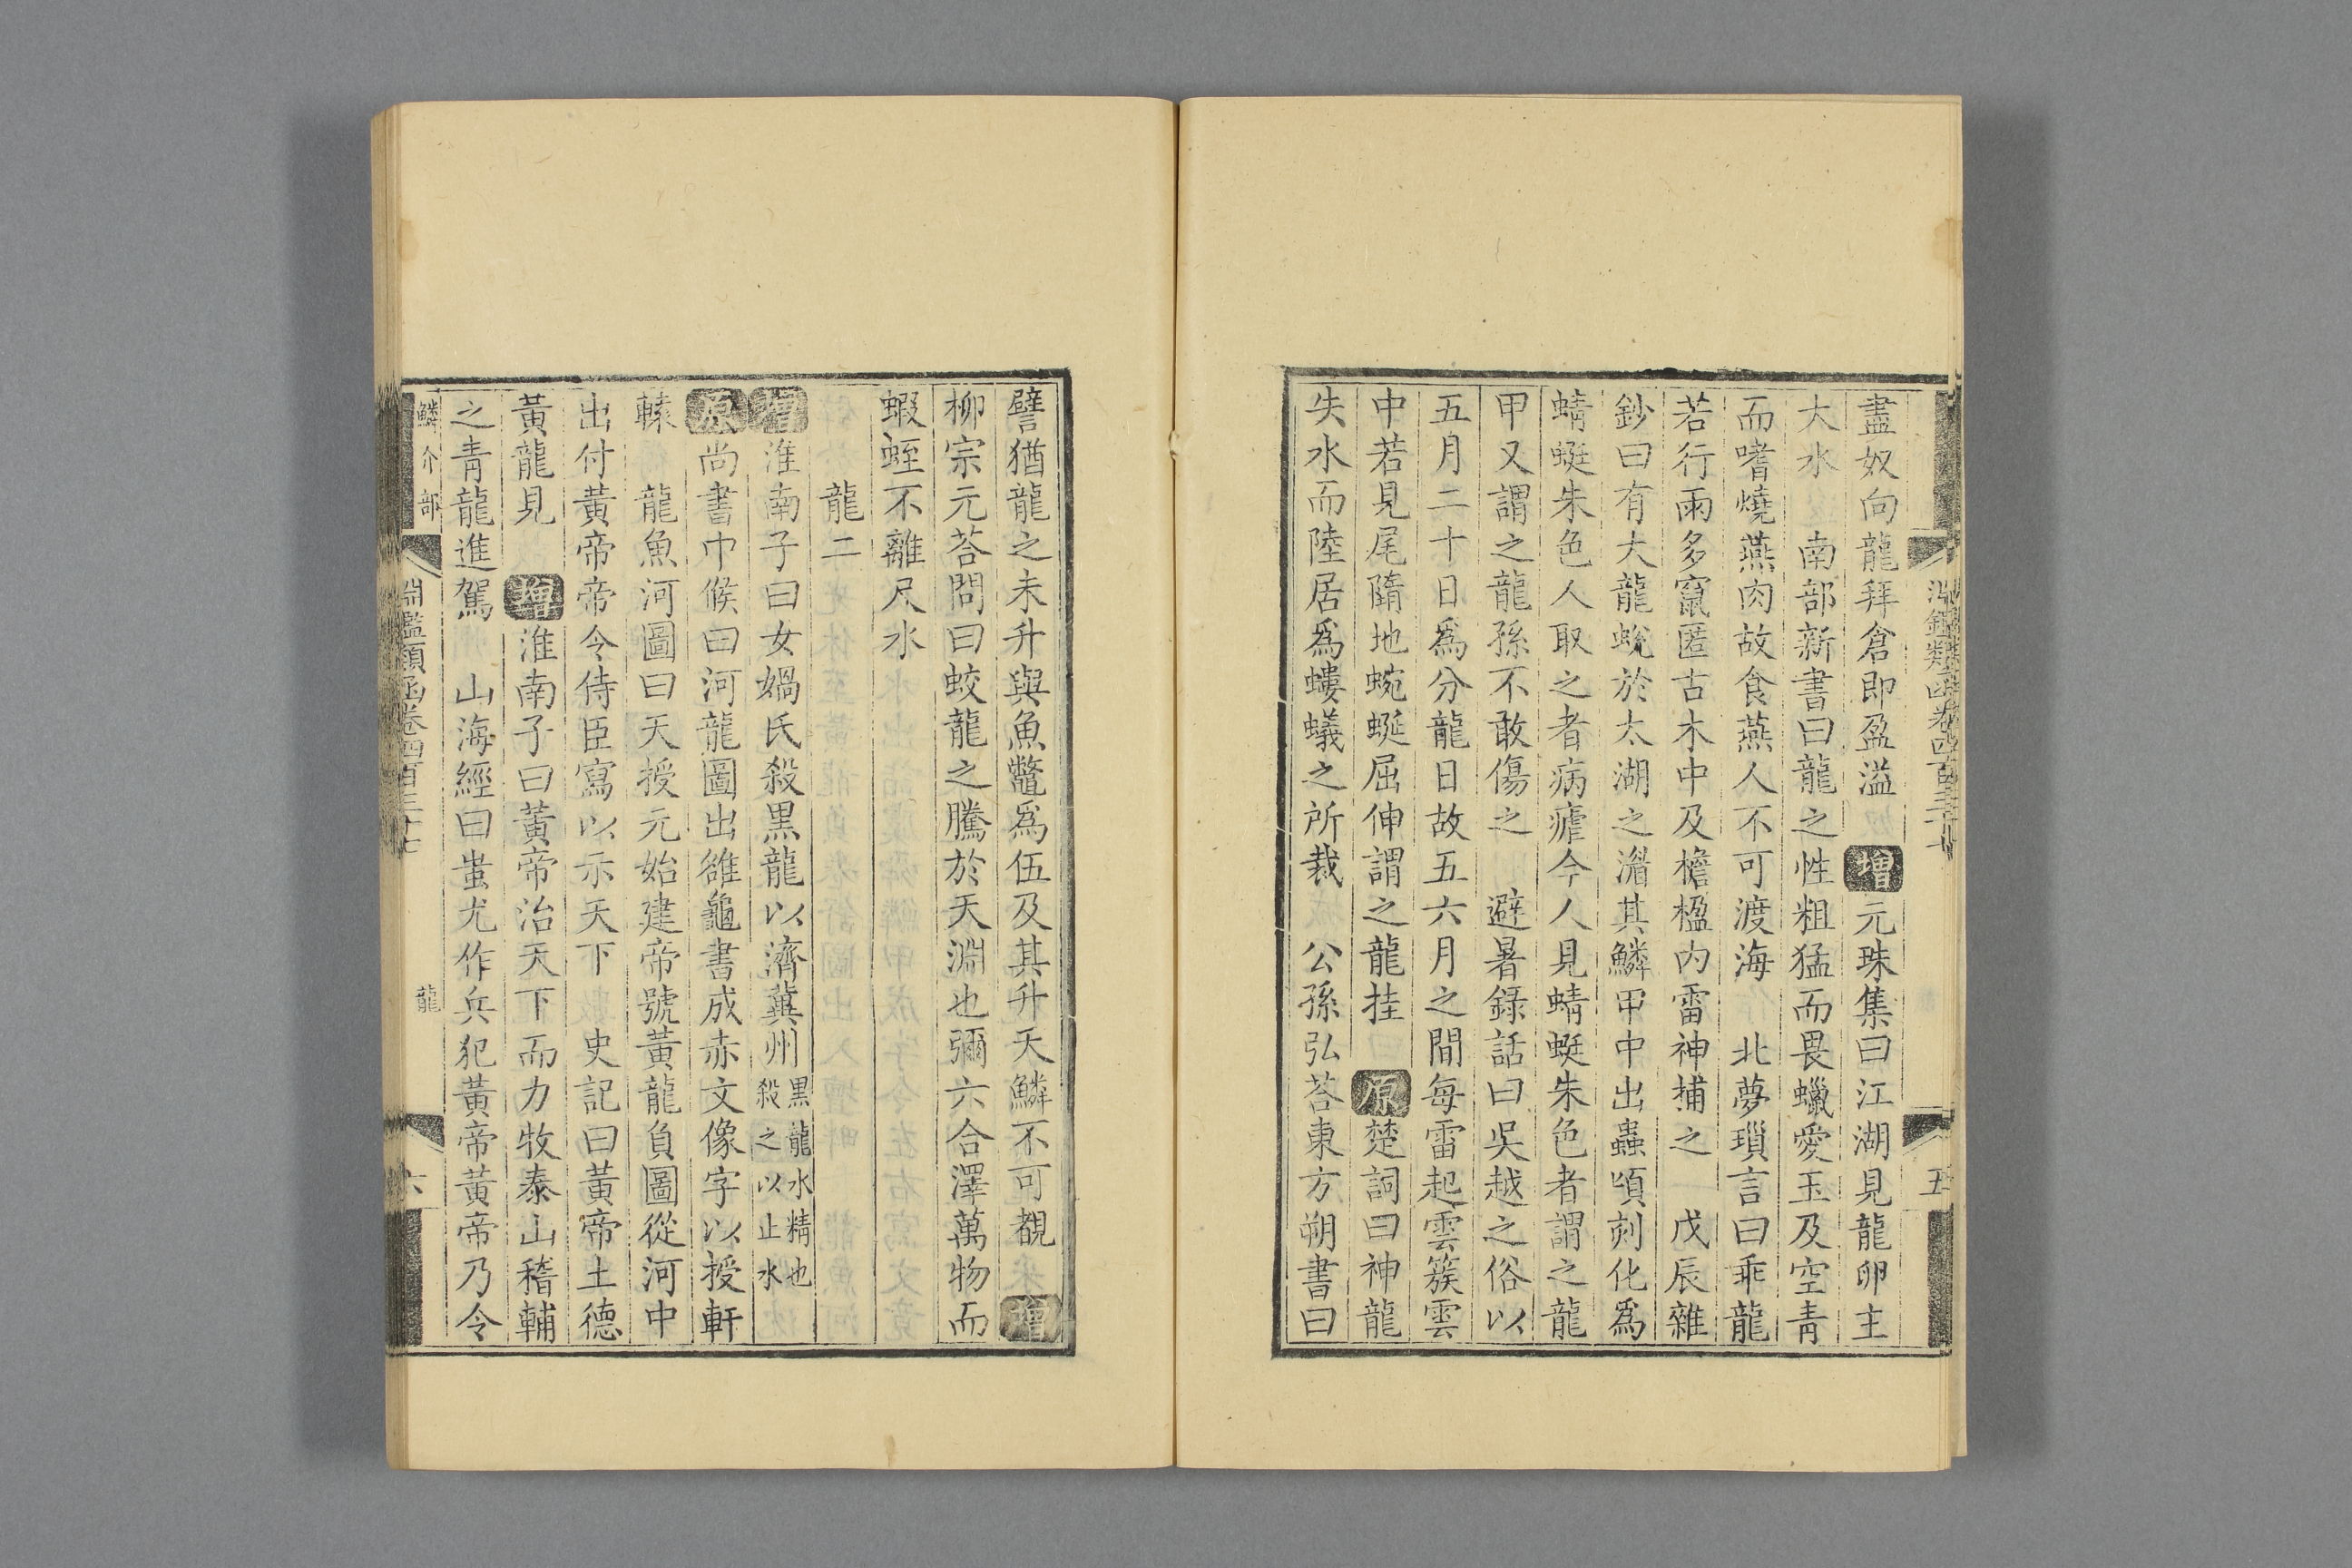 盡奴向龍拜倉即盈溢 增 元珠集曰江湖見龍卵主
大水 南部新書曰龍之性粗猛而畏蠟愛玉及空青
而嗜燒燕肉故食燕人不可渡海 北夢瑣言曰乖龍
若行雨多竄匿古木中及檐楹内雷神捕之 戊辰雜
鈔曰有大龍蛻於太湖之湄其鱗甲中出蟲頃刻化爲
蜻蜓朱色人取之者病瘧今人見蜻蜓朱色者謂之龍
甲又謂之龍孫不敢傷之 避暑録話曰吳越之俗以
五月二十日爲分龍日故五六月之間每雷起雲簇雲
中若見尾隨地蜿蜒屈伸謂之龍挂 原 楚詞曰神龍
失水而陸居爲螻蟻之所裁 公孫弘荅東方朔書曰
五
譬猶龍之未升與魚鼈爲伍及其升天鱗不可覩 增
柳宗元荅問曰蛟龍之騰於天淵也彌六合澤萬物而
蝦蛭不離尺水
龍二
增 淮南子曰女媧氏殺黑龍以濟冀州 黑龍水精也殺之以止水
原 尚書中候曰河龍圖出雒龜書成赤文像字以授軒
轅 龍魚河圖曰天授元始建帝號黃龍負圖從河中
出付黃帝帝令侍臣寫以示天下 史記曰黃帝土德
黃龍見 增 淮南子曰黃帝治天下而力牧泰山稽輔
之青龍進駕 山海經曰蚩尤作兵犯黃帝黃帝乃令
鱗介部 淵鑑類函卷四百三十七 龍 六